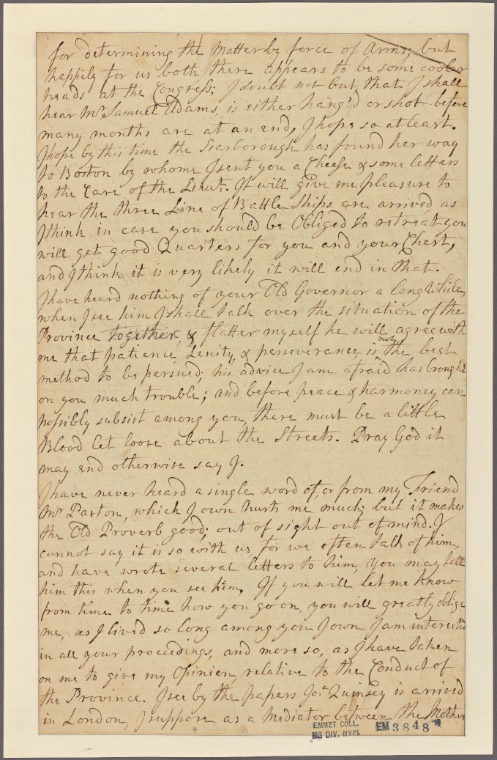 for determining the Matter by force of Arms; but
happily for us both there appears to be some cooler
heads at the Congress; I doubt not but that I shall
hear Mr Samuel Adams, is either hang'd or shot before
many months are at an end, I hope so at least.
I hope by this time the Scarborough has found her way
to Boston by whome I sent you a Cheese & some letters
to the Care of the Lieut. It will give me pleasure to
hear the three Line of Battle Ships are arrived as
I think in case you should be Obliged to retreat you
will get good Quarters for you and your Chest,
and I think it is very likely it will end in that.
I have heard nothing of your Old Governor a long While
when I see him I shall talk over the situation of the
Province together, & flatter myself he will agree with
me that patience, Lenity, & perseverance is not the best
method to be persued; his advice I am afraid has brought
on you much trouble; and before peace & harmoney can
possibly subsist among you, there must be a little
Blood let loose about the Streets. Pray God it
may end otherwise say I.
I have never heard a single word of, or from my Friend
Mr Paxton, which I own hurts me much, but it makes
the Old Proverb good; out of sight out of mind. I
cannot say it is so with us, for we often talk of him,
and have wrote several letters to him, You may tell
him this when you see him. If you will let me know
from time to time how you go on, you will greatly oblige
me, as I lived so long among you I own I am interested
in all your proceedings, and more so, as I have taken
on me to give my Opinion relative to the Conduct of
the Province. I see by the papers Jos: Quinsey is arrived
in London, I suppose as a Mediator between the Mother
EMMET COLL.
MS DIV. NYPL
EM 3848